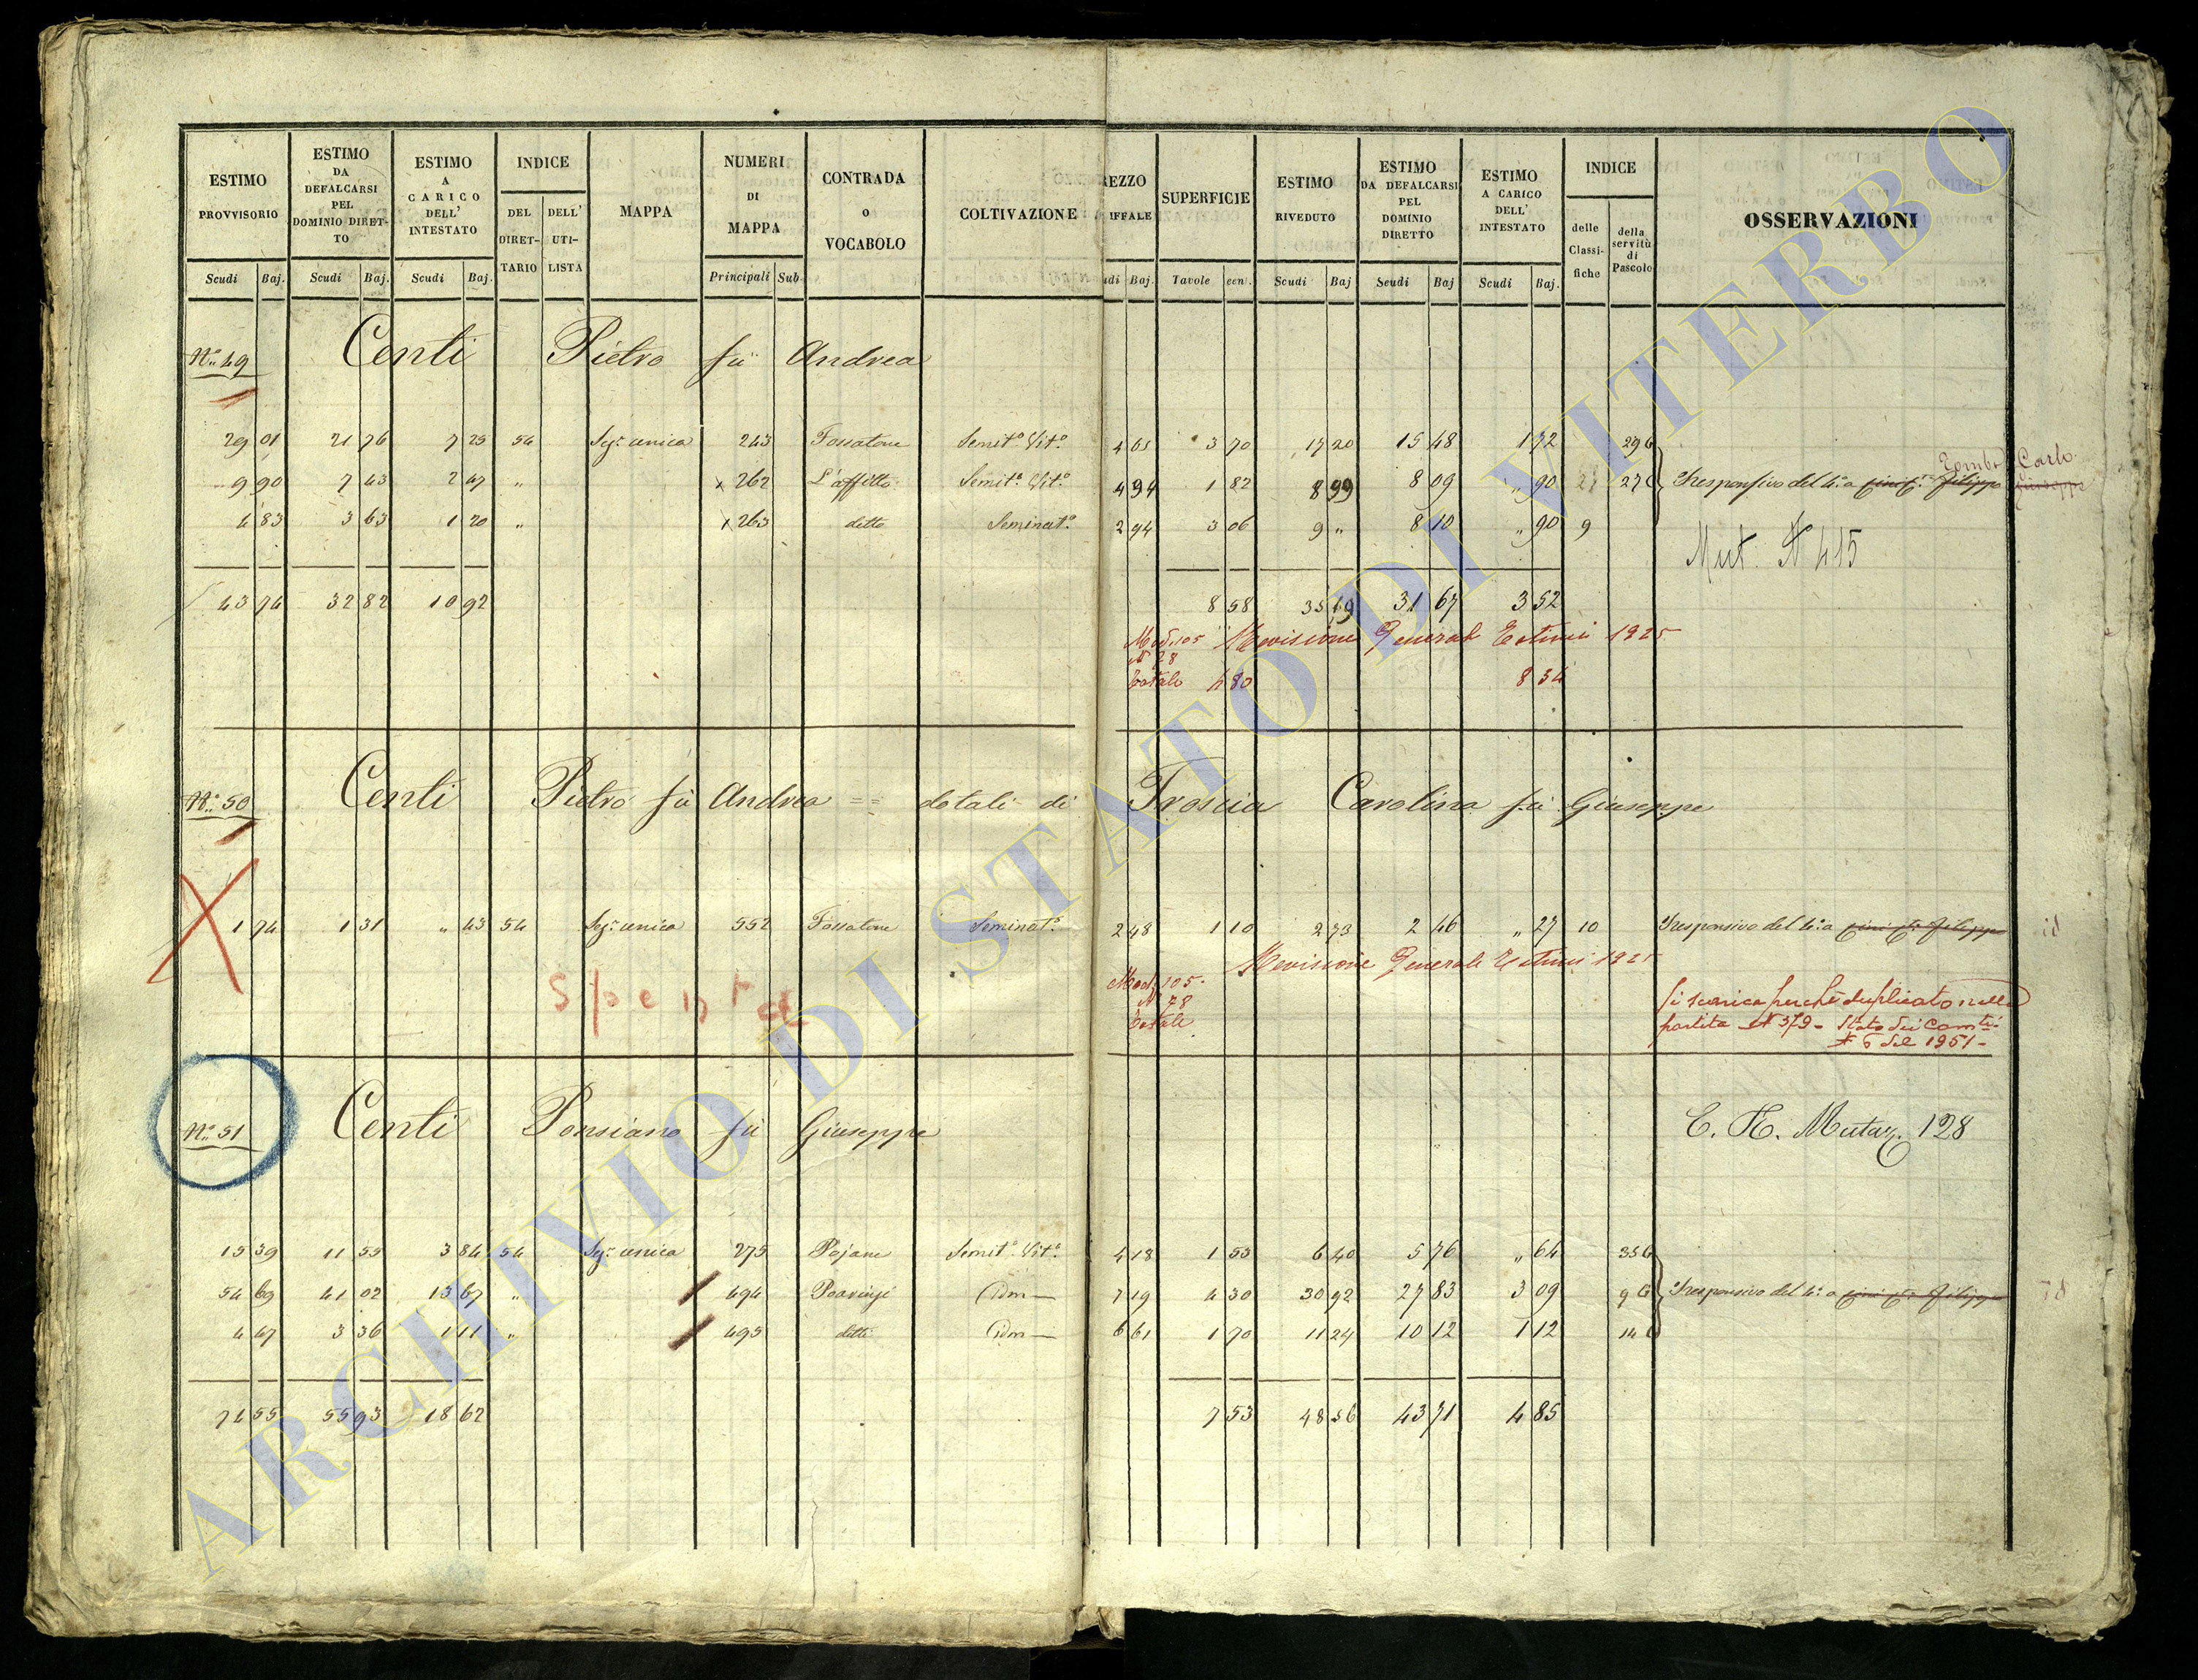 ESTIMO PROVVISORIO | ESTIMO DA DEFALCARSI PEL DOMINIO DIRET-TO | ESTIMO A CARICO DELL' INTESTATO | INDICE | MAPPA | NUMERI DI MAPPA | CONTRADA O VOCABOLO | COLTIVAZIONE | REZZO IFFALE | SUPERFICIE | ESTIMO RIVEDUTO | ESTIMO DA DEFALCARSI PEL DOMINIO DIRETTO | ESTIMO A CARICO DELL' INTESTATO | INDICE | OSSERVAZIONI
DEL DIRET-TARIO | DELL' UTI-LISTA | delle Classi-fiche | della servitù di Pascolo
Scudi | Baj. | Scudi | Baj. | Scudi | Baj. | Principali | Sub | udi | Baj. | Tavole | cen. | Scudi | Baj | Scudi | Baj | Scudi | Baj.
N.° 49 Centi Pietro fù Andrea
29 01 21 76 7 25 54 Sez.e unica 243 Fossatone Semit.o Vit.o 4 65 3 70 17 20 15 48 1 72 29 6
Carlo
9 90 7 43 2 47 " x 262 L'affitto Semit.o Vit.o 4 94 1 82 8 99 8 09 " 90 27 6 Responsivo del 4.o a Filippo
4 83 3 63 1 20 " x 263 detto Seminat.o 2 94 3 06 9 " 8 10 " 90 9
Mut. N 415
43 74 32 82 10 92 8 58 35 19 31 67 3 52
Mod. 105 Revisione Generale Estimi 1925
N 78
Totale 4 80 8 34
N.° 50 Centi Pietro fù Andrea == dotali di Troscia Carolina fù Giuseppe
1 74 1 31 " 43 54 Sez.e unica 552 Fossatone Seminat.o 2 48 1 10 2 73 2 46 " 27 10 Responsivo del 4.o a Filippo id
Revisione Generale Estimi 1925
Mod. 105
N 78
Totale
Spenta
Si scarica perchè duplicato nella
partita N 379 - Stato dei Camb.ti
N 6 del 1951 -
N.° 51 Centi Ponsiano fù Giuseppe
C. N. Mutaz. 128
15 39 11 55 3 84 54 Sez.e unica 275 Pojane Semit.o Vit.o 4 18 1 53 6 40 5 76 " 64 35 6
54 69 41 02 13 67 " 494 Idm 7 19 4 30 30 92 27 83 3 09 9 6 Responsivo del 4.o a Filippo id
4 47 3 36 1 11 " 495 detto Idm 6 61 1 70 11 24 10 12 1 12 14 6
74 55 55 93 18 62 7 53 48 56 43 71 4 85
ARCHIVIO DI STATO DI VITERBO